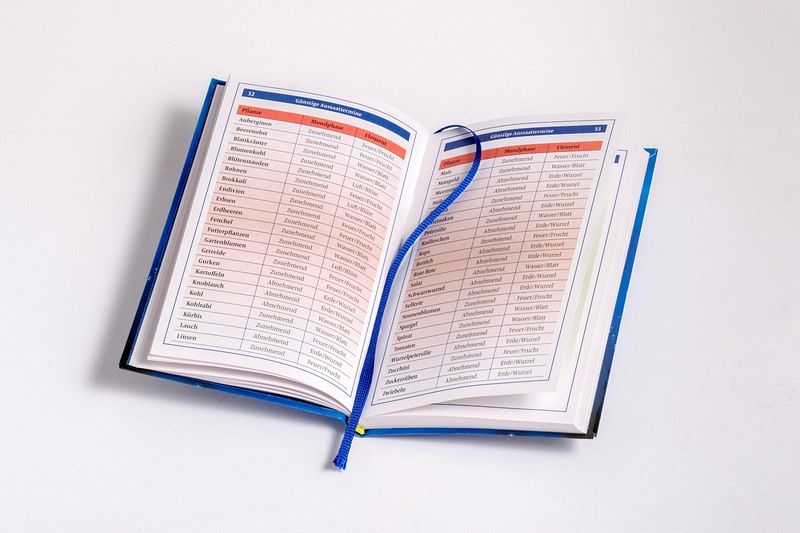 32 Günstige Aussaattermine
Pflanze Mondphase Element
Auberginen Zunehmend Feuer/Frucht
Beerenobst Zunehmend Feuer/Frucht
Blattkräuter Zunehmend Wasser/Blatt
Blumenkohl Zunehmend Wasser/Blatt
Blütenstauden Zunehmend Luft/Blüte
Bohnen Zunehmend Feuer/Frucht
Brokkoli Zunehmend Luft/Blüte
Endivien Zunehmend Wasser/Blatt
Erbsen Zunehmend Feuer/Frucht
Erdbeeren Zunehmend Feuer/Frucht
Fenchel Zunehmend Wasser/Blatt
Futterpflanzen Zunehmend Wasser/Blatt
Gartenblumen Zunehmend Luft/Blüte
Getreide Zunehmend Feuer/Frucht
Gurken Zunehmend Feuer/Frucht
Kartoffeln Abnehmend Erde/Wurzel
Knoblauch Abnehmend Erde/Wurzel
Kohl Zunehmend Wasser/Blatt
Kohlrabi Zunehmend Wasser/Blatt
Kürbis Zunehmend Feuer/Frucht
Lauch Abnehmend Erde/Wurzel
Linsen Zunehmend Feuer/Frucht
Günstige Aussaattermine 33
Pflanze Mondphase Element
Mais Zunehmend Feuer/Frucht
Mangold Zunehmend Wasser/Blatt
Abnehmend Erde/Wurzel
Abnehmend Erde/Wurzel
Abnehmend Erde/Wurzel
Petersilie Zunehmend Wasser/Blatt
Radieschen Abnehmend Erde/Wurzel
Raps Zunehmend Feuer/Frucht
Rettich Abnehmend Erde/Wurzel
Rote Bete Abnehmend Erde/Wurzel
Salat Zunehmend Wasser/Blatt
Schwarzwurzel Abnehmend Erde/Wurzel
Sellerie Abnehmend Erde/Wurzel
Sonnenblumen Zunehmend Feuer/Frucht
Spargel Abnehmend Erde/Wurzel
Spinat Zunehmend Wasser/Blatt
Tomaten Zunehmend Feuer/Frucht
Wurzelpetersilie Abnehmend Erde/Wurzel
Zucchini Zunehmend Feuer/Frucht
Zuckerrüben Abnehmend Erde/Wurzel
Zwiebeln Abnehmend Erde/Wurzel